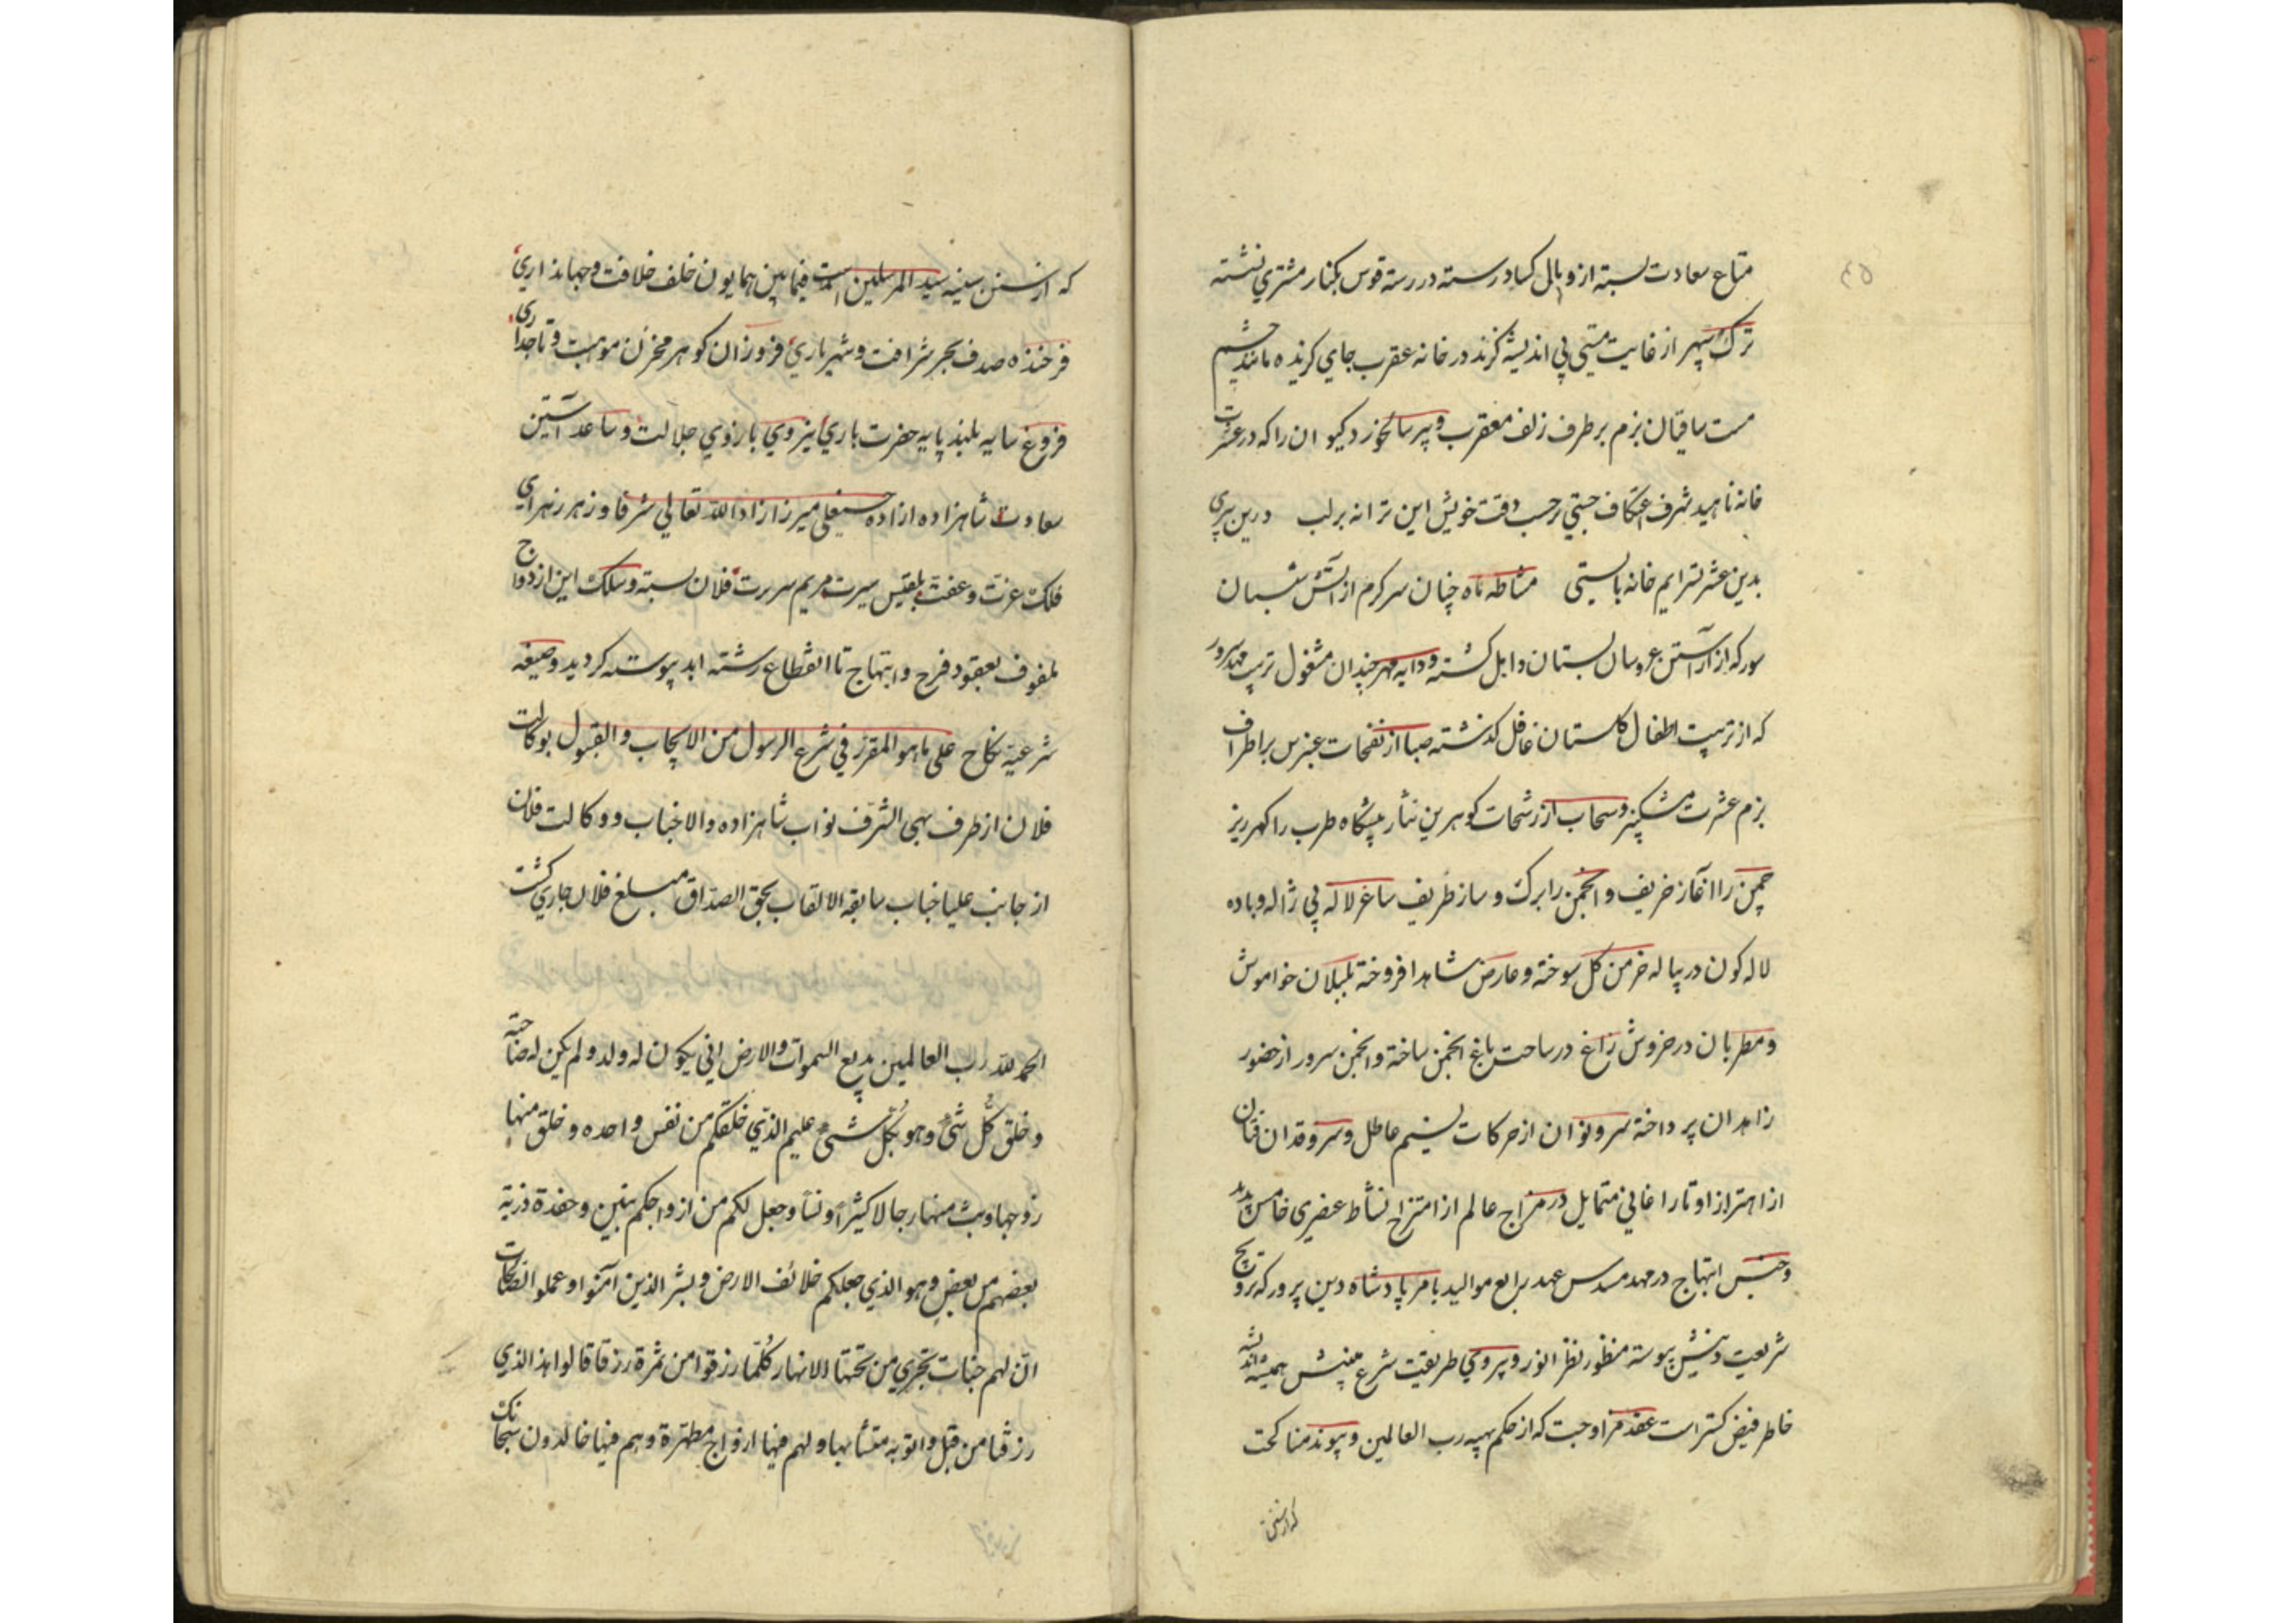 متاع سعادت بسته از وبال کساد رسته در رسته قوس بکنار مشتری نشسته
ترک سپهر از غایت مستی پی اندیشهٔ کزند در خانه عقرب جای کزیده مانند چشم
مست ساقیان بزم بر طرف زلف معقرب و پیر سالخورد کیوان را که در عشرت
خانه ناهید شرف اعتکاف جستی بر حسب وقت خویش این ترانه بر لب درین پیری
بدین عشرتسرایم خانه بایستی مشاطه ماه چنان سرکرم از آتش شبستان
سور که از آراستن عروسان بستان ذاهل کشته و دایه مهر چندان مشغول تربیت مهد سرور
که از تربیت اطفال کلستان غافل کذشته صبا از نفحات عنبرین بر اطراف
بزم عشرت مشکبیز و سحاب از رشحات کوهرین نثار پیشکاه طرب را کهر ریز
چمن را آغاز خریف و انجمن را برک و ساز ظریف ساغر لاله پی ژاله و باده
لاله کون در پیاله خرمن کل سوخته و عارض شاهد افروخته بلبلان خواموش
و مطربان در خروش زاغ در ساحت باغ انجمن ساخته و انجمن سرور از حضور
زاهدان پرداخته سرو نوان از حرکات نسیم عاطل و سروقدان فتان
از اهتزاز اوتار اغانی متمایل در مزاج عالم از امتزاج نشاط عنصری خامس پدید
و جنس ابتهاج در مهد مسدس عهد رابع موالید بامر پادشاه دین پرور که ترویج
شریعت پیوسته منظور نظر انور و پیروی طریقت شرع همیشه اندیشه
خاطر فیض کستر است عقد مزاوجت که از حکم بهیه رب العالمین و پیوند مناکحت
که از سنن
که از سنن سنیه سید المرسلین است فیمابین همایون خلف خلافت و جهانداری
فرخنده صدف بحر شرافت و شهریاری فروزان کوهر مخزن موهبت و تاجداری
فروغ سایه بلند پایه حضرت باری نیروی بازوی جلالت و ساعد آستین
سعادت شاهزاده ازاده حسینعلی میرزا زاد الله تعالی شرفا و زهره زهرای
فلک عزت و عفت بلقیس سیرت مریم سریرت فلان بسته و سلک این ازدواج
ملفوف بعقود فرح و ابتهاج تا انقطاع رشته ابد پیوسته کردید و صیغه
شرعیه نکاح علی ما هو المقرر فی شرع الرسول من الایجاب و القبول بوکالت
فلان از طرف بهی الشرف نواب شاهزاده والاجناب و وکالت فلان
از جانب علیا جناب سابقة الالقاب بحق الصداق مبلغ فلان جاری کشت
الحمد لله رب العالمین بدیع السموات والارض انی یکون له ولد و لم یکن له صاحبة
و خلق کل شئ و هو بکل شئ علیم الذی خلقکم من نفس واحده و خلق منها
زوجها و بث منهما رجالا کثیرا و نساء و جعل لکم من ازواجکم بنین و حفدة ذریة
بعضهم من بعض و هو الذی جعلکم خلائف الارض و بشر الذین آمنوا و عملوا الصالحات
ان لهم جنات تجری من تحتها الانهار کلما رزقوا من ثمرة رزقا قالوا هذا الذی
رزقنا من قبل و اتوا به متشابها و لهم فیها ازواج مطهرة و هم فیها خالدون سبحانک